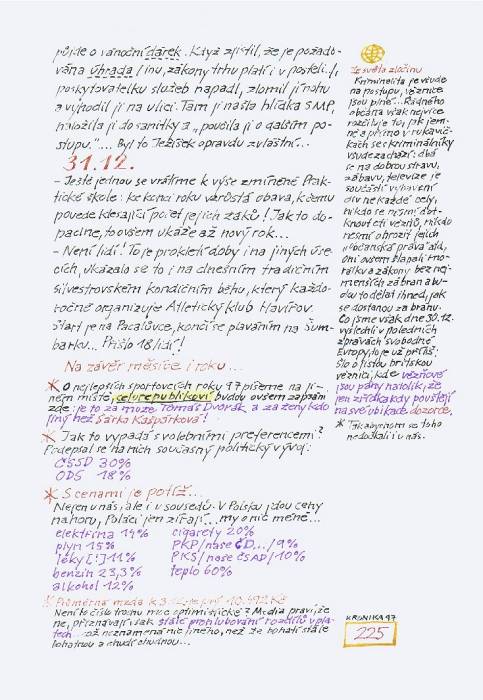 půjde o vánoční dárek. Když zjistil, že je požado-
vána úhrada i inu, zákony trhu platí i v posteli.,
poskytovatelku služeb napadl, zlomil jí nohu
a vyhodil ji na ulici. Tam ji našla hlídka SMP,
naložila ji do sanitky a „poučila ji o dalším po-
stupu."... Byl to Ježíšek opravdu zvláštní...
31.12.
- Ještě jednou se vrátíme k výše zmíněné Prak-
tické škole: ke konci roku vzrůstá obava, k čemu
povede klesající počet jejích žáků! Jak to do-
padne, to ovšem ukáže až nový rok...
- Není lidí! To je prokletí doby i na jiných úse-
cích, ukázalo se to i na dnešním tradičním
silvestrovském kondičním běhu, který každo-
ročně organizuje Atletický klub Havířov.
Start je na Pacalůvce, končí se plaváním na Šum-
barku... Přišlo 18 lidí!
Na závěr měsíce i roku...
* O nejlepších sportovcích roku 97 píšeme na ji-
ném místě, celorepublikoví budou ovšem zapsáni
zde: je to za muže Tomáš Dvořák a za ženy kdo
jiný než Šárka Kašpárková!
* Jak to vypadá s volebními preferencemi?
Podepsal se na nich současný politický vývoj:
ČSSD 30%
ODS 18%
* S cenami je potíž...
Nejen u nás, ale i u sousedů. V Polsku jdou ceny
nahoru, Poláci jen zírají... my o nic méně...
elektřina 14% cigarety 20%
plyn 15% PKP/naše ČD.../9%
léky [!] 11% PKS/naše ČSAD/10%
benzin 23,3% teplo 60%
alkohol 12%
* Průměrná mzda k
Není to číslo trochu moc optimistické? Media praví, že
ne, přiznávají však stálé prohlubování rozdílů v pla-
tech... což neznamená nic jiného, než že bohatí stále
bohatnou a chudí chudnou...
Ze světa zločinu
Kriminalita je všude
na postupu, věznice
jsou plné... Řádného
občana však nejvíce
rozčiluje to, jak jem-
ně a přímo v rukavič-
kách se s kriminálníky
všude zachází: dbá
se na dobrou stravu,
zábavu, televize je
součástí vybavení
div ne každé cely,
nikdo se nesmí dot-
knout cti vězňů, nikdo
nesmí ohrozit jejich
„občanská práva" atd.
Oni ovšem šlapali mo-
rálku a zákony bez nej-
menších zábran a bu-
dou to dělat ihned, jak
se dostanou za bránu.
Co jsme však dne 30.12.
vyslechli v poledních
zprávách Svobodné
Evropy, to je už příliš:
šlo o jistou britskou
věznici, kde vězňové
jsou pány natolik, že
jen zřídka kdy pouštějí
na své ubikace dozorce.
* Tak abychom se toho
nedočkali i u nás.
KRONIKA 97
225